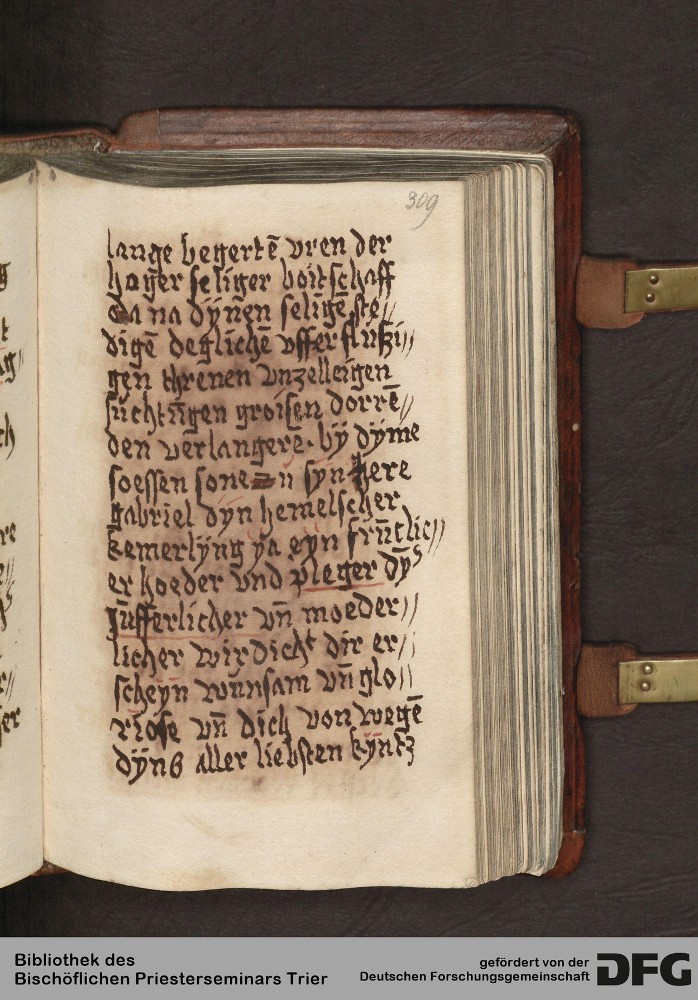 309
lange begertē vren der
hoger seliger boitschaff
da na dÿnen seligē ste//
digē deglichē vfferflußi//
gen threnen vnzelleigen
suchtūgen groisen dorrē//
den verlangerē. bÿ dÿme
soessen sone n sÿn here
gabriel dÿn hemelscher
kemerlÿng ÿa eÿn frūtlic//
er hoeder vnd pleger dÿs
jūfferlicher vn̄ moeder//
licher wirdicht dir er//
scheÿn wūnsam vn̄ glo//
riose vn̄ dich von wegē
dÿns aller liebsten kÿntz
Bibliothek des
Bischöflichen Priesterseminars Trier
gefördert von der
Deutschen Forschungsgemeinschaft
DFG